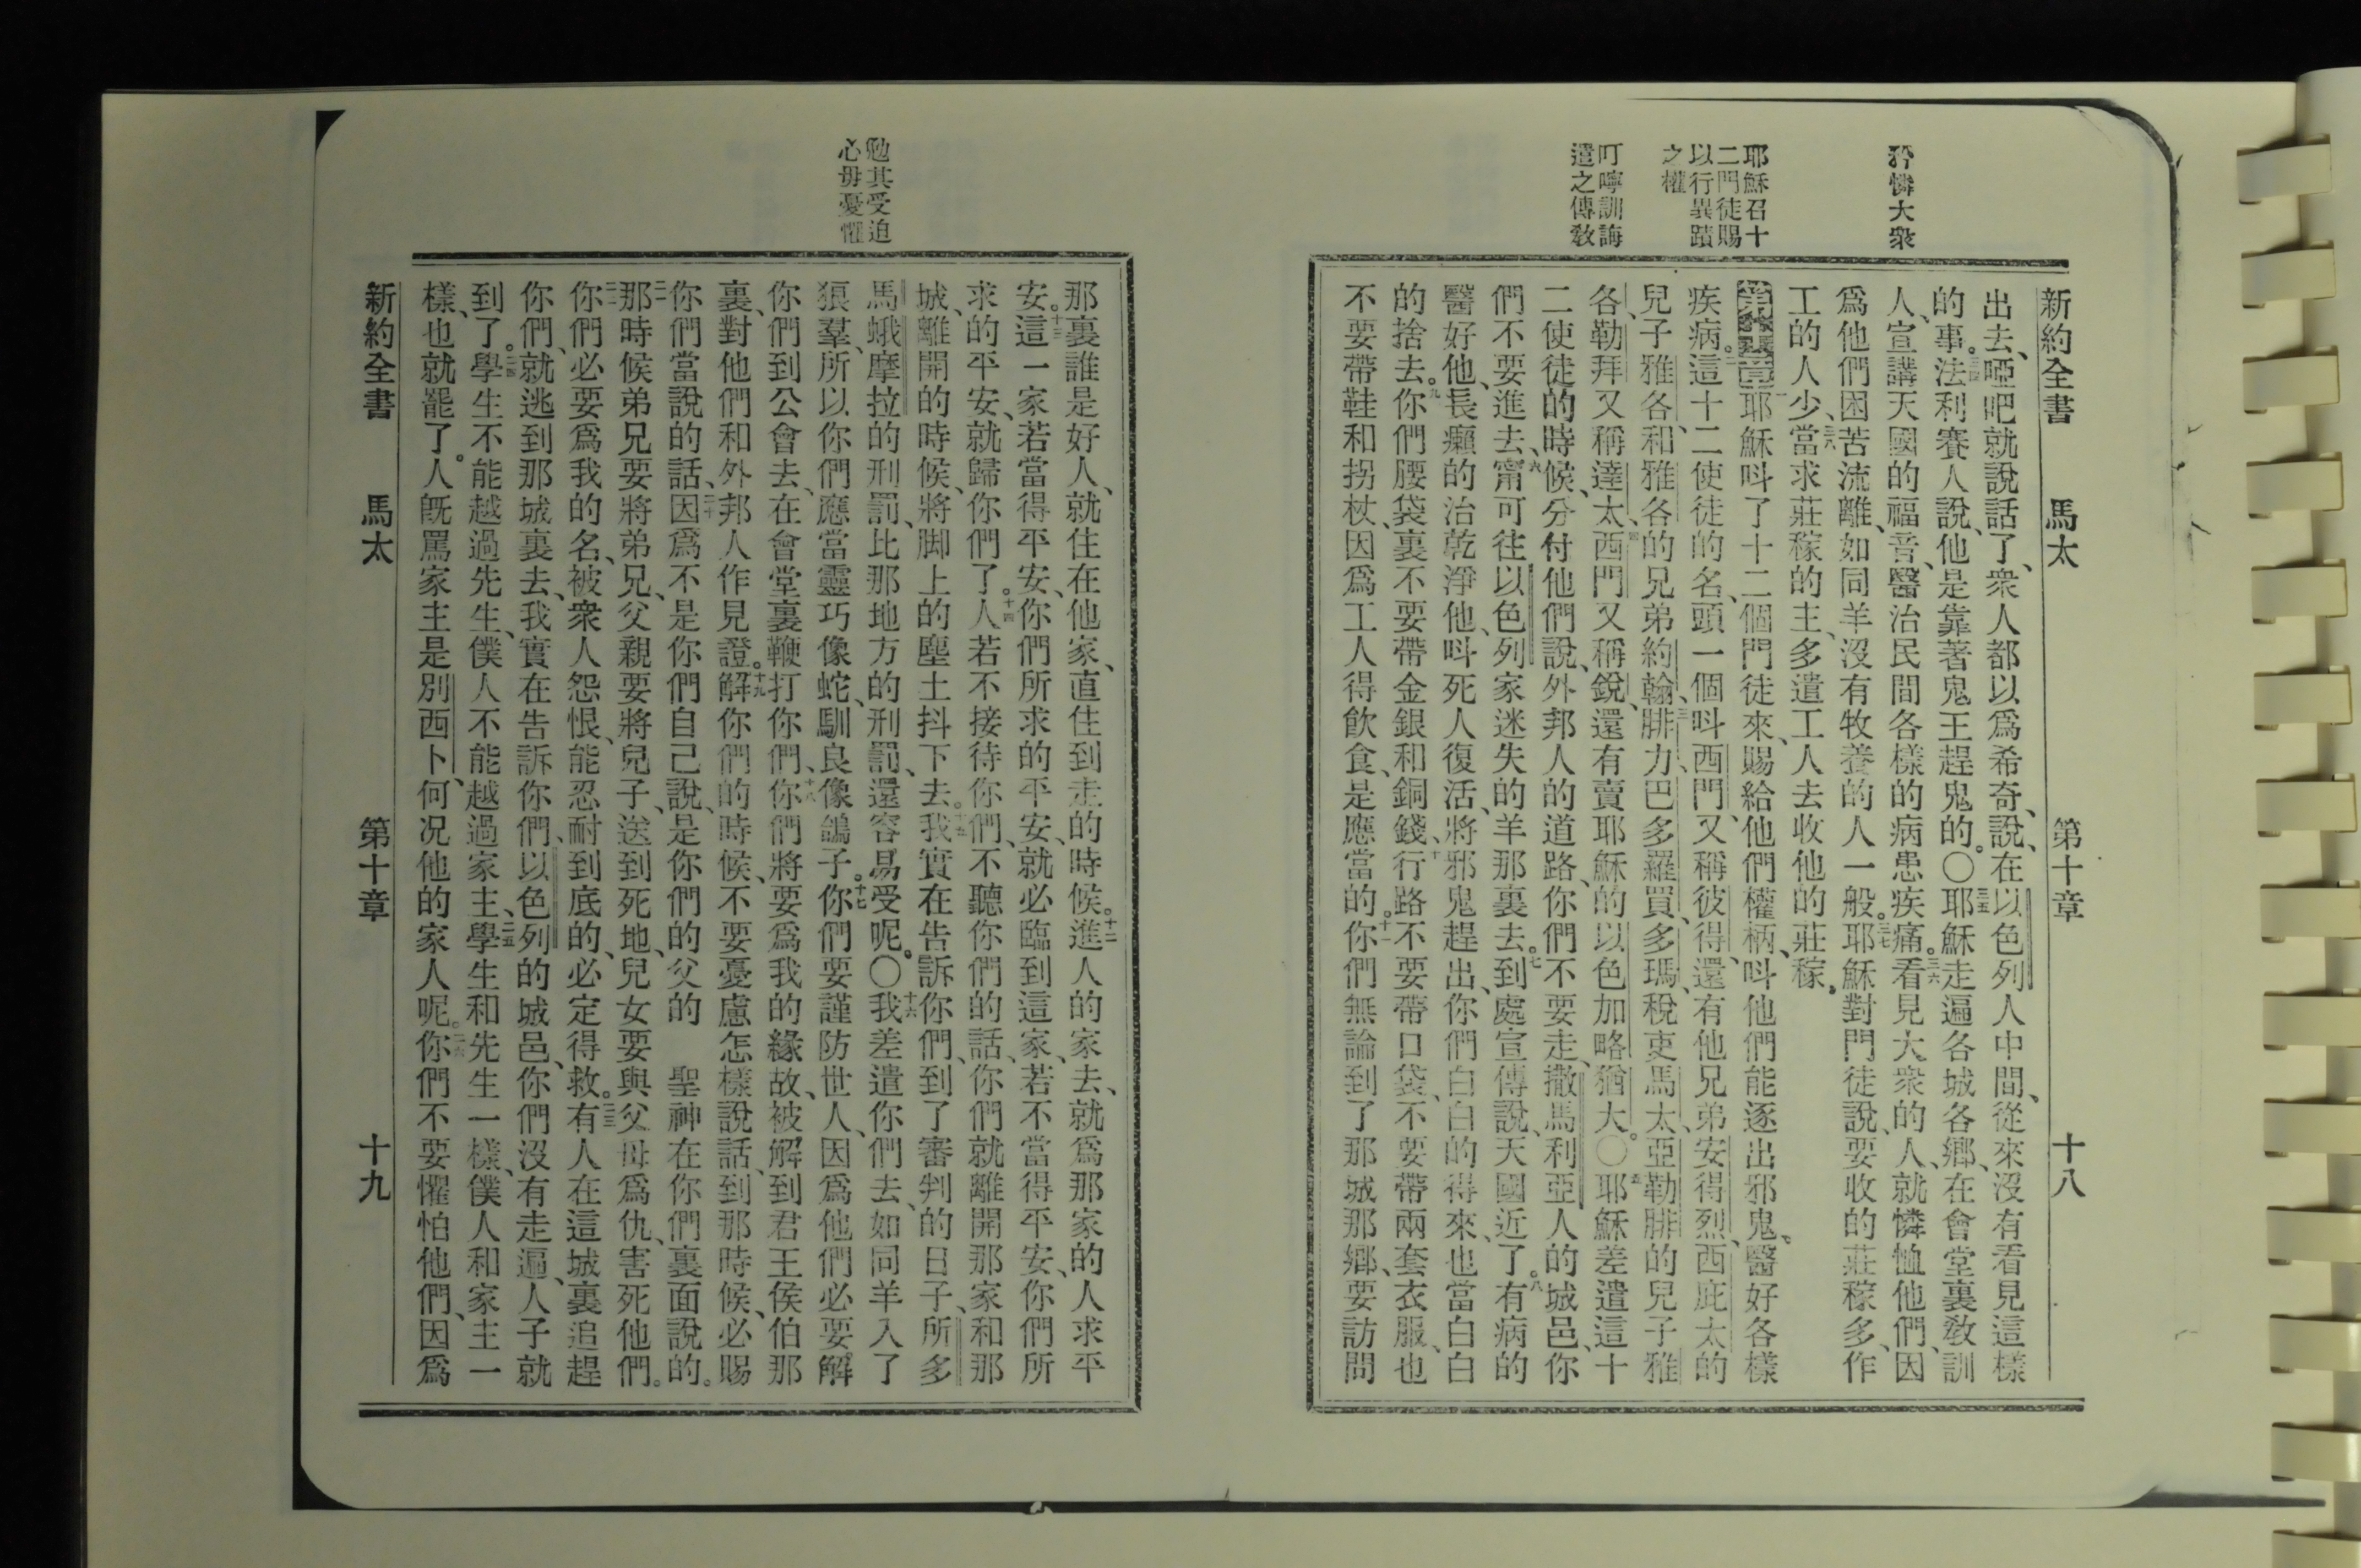 新約全書 馬太 第十章 十八
矜憐大衆
耶穌召十
二門徒賜
以行異蹟
之權
叮嚀訓誨
遣之傳敎
出去、啞吧就說話了、衆人都以爲希奇、說、在以色列人中間、從來沒有看見這樣
的事。三四法利賽人說、他是靠著鬼王趕鬼的。〇三五耶穌走遍各城各鄉、在會堂裏敎訓
人、宣講天國的福音、醫治民間各樣的病患疾痛。三六看見大衆的人、就憐恤他們、因
爲他們困苦流離、如同羊沒有牧養的人一般。三七耶穌對門徒說、要收的莊稼多、作
工的人少、三八當求莊稼的主、多遣工人去收他的莊稼。
第十章一耶穌呌了十二個門徒來、賜給他們權柄、呌他們能逐出邪鬼、醫好各樣
疾病。二這十二使徒的名、頭一個呌西門、又稱彼得、還有他兄弟安得烈、西庇太的
兒子雅各、和雅各的兄弟約翰、三腓力、巴多羅買、多瑪、稅吏馬太、亞勒腓的兒子雅
各、勒拜又稱達太、四西門又稱銳、還有賣耶穌的以色加略猶大。〇五耶穌差遣這十
二使徒的時候、分付他們說、外邦人的道路、你們不要走、撒馬利亞人的城邑、你
們不要進去、六甯可往以色列家迷失的羊那裏去。七到處宣傳說、天國近了。八有病的
醫好他、長癩的治乾淨他、呌死人復活、將邪鬼趕出、你們白白的得來、也當白白
的捨去。九你們腰袋裏不要帶金銀和銅錢、十行路不要帶口袋、不要帶兩套衣服、也
不要帶鞋和拐杖、因爲工人得飮食、是應當的。十一你們無論到了那城那鄉、要訪問
勉其受迫
心毋憂懼
那裏誰是好人、就住在他家、直住到走的時候。十二進人的家去、就爲那家的人求平
安。十三這一家若當得平安、你們所求的平安、就必臨到這家、若不當得平安、你們所
求的平安、就歸你們了。十四人若不接待你們、不聽你們的話、你們就離開那家和那
城、離開的時候、將脚上的塵土抖下去。十五我實在告訴你們、到了審判的日子、所多
馬蛾摩拉的刑罰、比那地方的刑罰、還容易受呢。〇十六我差遣你們去、如同羊入了
狼羣、所以你們應當靈巧像蛇、馴良像鴿子。十七你們要謹防世人、因爲他們必要解
你們到公會去、在會堂裏鞭打你們、十八你們將要爲我的緣故、被解到君王侯伯那
裏、對他們和外邦人作見證。十九解你們的時候、不要憂慮怎樣說話、到那時候、必賜
你們當說的話、二十因爲不是你們自己說、是你們的父的 聖神在你們裏面說的。
二一那時候弟兄要將弟兄、父親要將兒子、送到死地、兒女要與父母爲仇、害死他們。
二二你們必要爲我的名、被衆人怨恨、能忍耐到底的、必定得救。二三有人在這城裏追趕
你們、就逃到那城裏去、我實在告訴你們、以色列的城邑、你們沒有走遍、人子就
到了。二四學生不能越過先生、僕人不能越過家主、二五學生和先生一樣、僕人和家主一
樣、也就罷了。人旣罵家主是別西卜、何况他的家人呢。二六你們不要懼怕他們、因爲
新約全書 馬太 第十章 十九